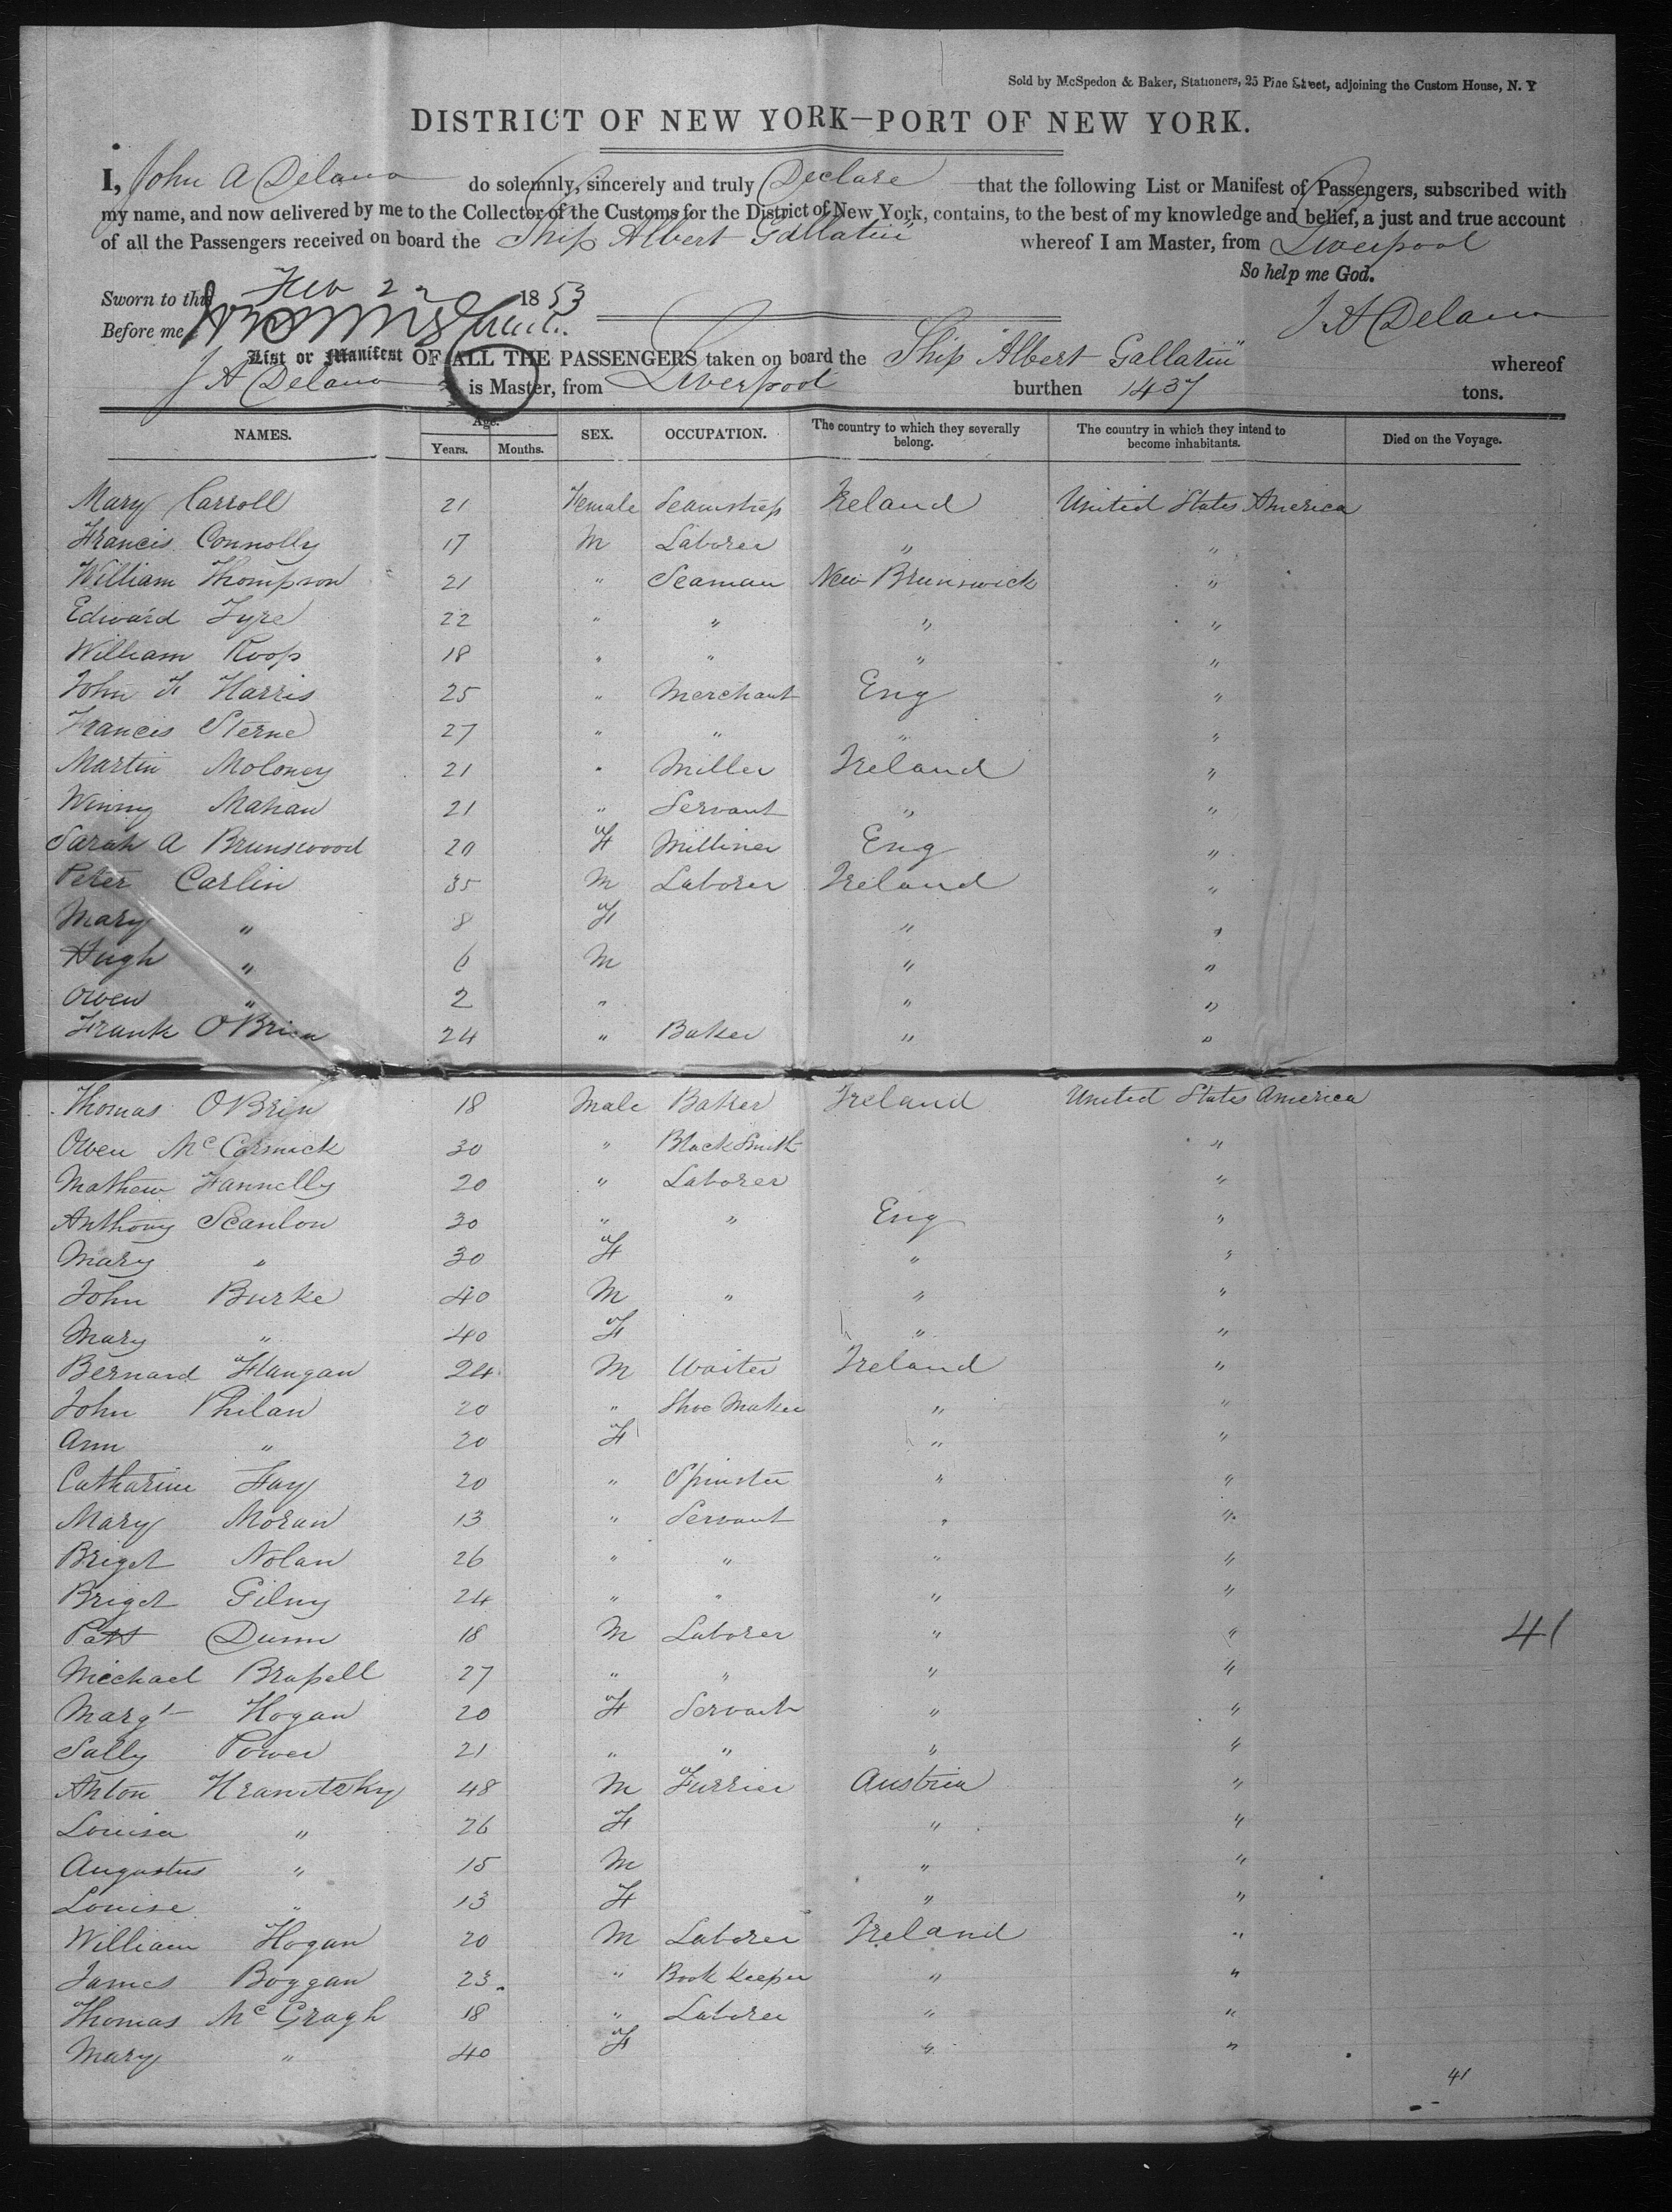 Sold by McSpedon & Baker, Stationers, 25 Pine Street, adjoining the Custom House, N. Y
DISTRICT OF NEW YORK—PORT OF NEW YORK.
I, John A Delano do solemnly, sincerely and truly Declare that the following List or Manifest of Passengers, subscribed with
my name, and now delivered by me to the Collector of the Customs for the District of New York, contains, to the best of my knowledge and belief, a just and true account
of all the Passengers received on board the Ship Albert Gallatin whereof I am Master, from Liverpool
So help me God.
Sworn to this Feb 22 1853
J A Delano
Before me
List or Manifest OF ALL THE PASSENGERS taken on board the Ship "Albert Gallatin" whereof
J A Delano is Master, from Liverpool burthen 1437 tons.
NAMES. Age. Years. Months. SEX. OCCUPATION. The country to which they severally belong. The country in which they intend to become inhabitants. Died on the Voyage.
Mary Carroll 21 Female Seamstress Ireland United States America
Francis Connolly 17 M Laborer " "
William Thompson 21 " Seaman New Brunswick "
Edward Fyre 22 " " " "
William Roop 18 " " " "
John F Harris 25 " Merchant Eng "
Francis Sterne 27 " " " "
Martin Moloney 21 " Miller Ireland "
Winny Mahan 21 " Servant " "
Sarah A Brunswood 20 F Milliner Eng "
Peter Carlin 35 M Laborer Ireland "
Mary " 8 F " "
Hugh " 6 M " "
Owen " 2 " " "
Frank OBrien 24 " Baker " "
Thomas OBrin 18 Male Baker Ireland United States America
Owen McCormick 30 " Black Smith "
Mathew Fannelly 20 " Laborer "
Anthony Scanlon 30 " " Eng "
Mary " 30 F " "
John Burke 40 M " " "
Mary " 40 F " "
Bernard Flangan 24 M Waiter Ireland "
John Philan 20 " Shoe Maker " "
Ann " 20 F " "
Catharine Fay 20 " Spinster " "
Mary Moran 13 " Servant " "
Briget Nolan 26 " " " "
Briget Gilny 24 " " " "
Patt Dunn 18 M Laborer " " 41
Michael Brassell 27 " " " "
Margt Hogan 20 F Servant " "
Sally Power 21 " " " "
Anton Hranitzky 48 M Furrier Austria "
Louisa " 26 F " "
Augustus " 15 M " "
Louise " 13 F " "
William Hogan 20 M Laborer Ireland "
James Boggan 23 " Book Keeper " "
Thomas McGragh 18 " Laborer " "
Mary " 40 F " "
41